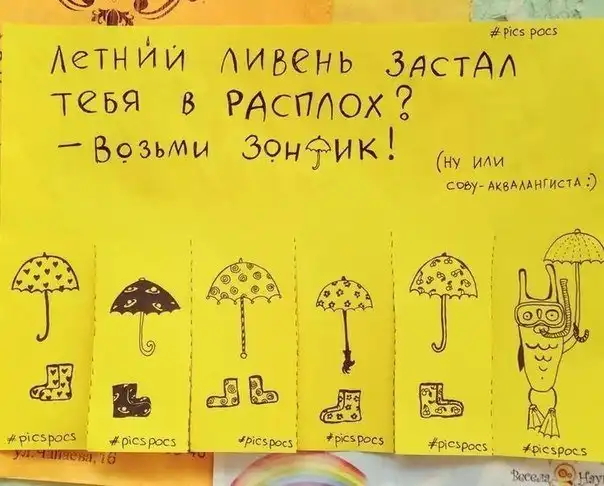 #pics pocs
Летний ливень застал
тебя в расплох?
– Возьми зонтик!
(ну или
сову-аквалангиста :)
#picspocs
#picspocs
#picspocs
#picspocs
#picspocs
#picspocs
ул. Чапаева, 16
Весела Нау